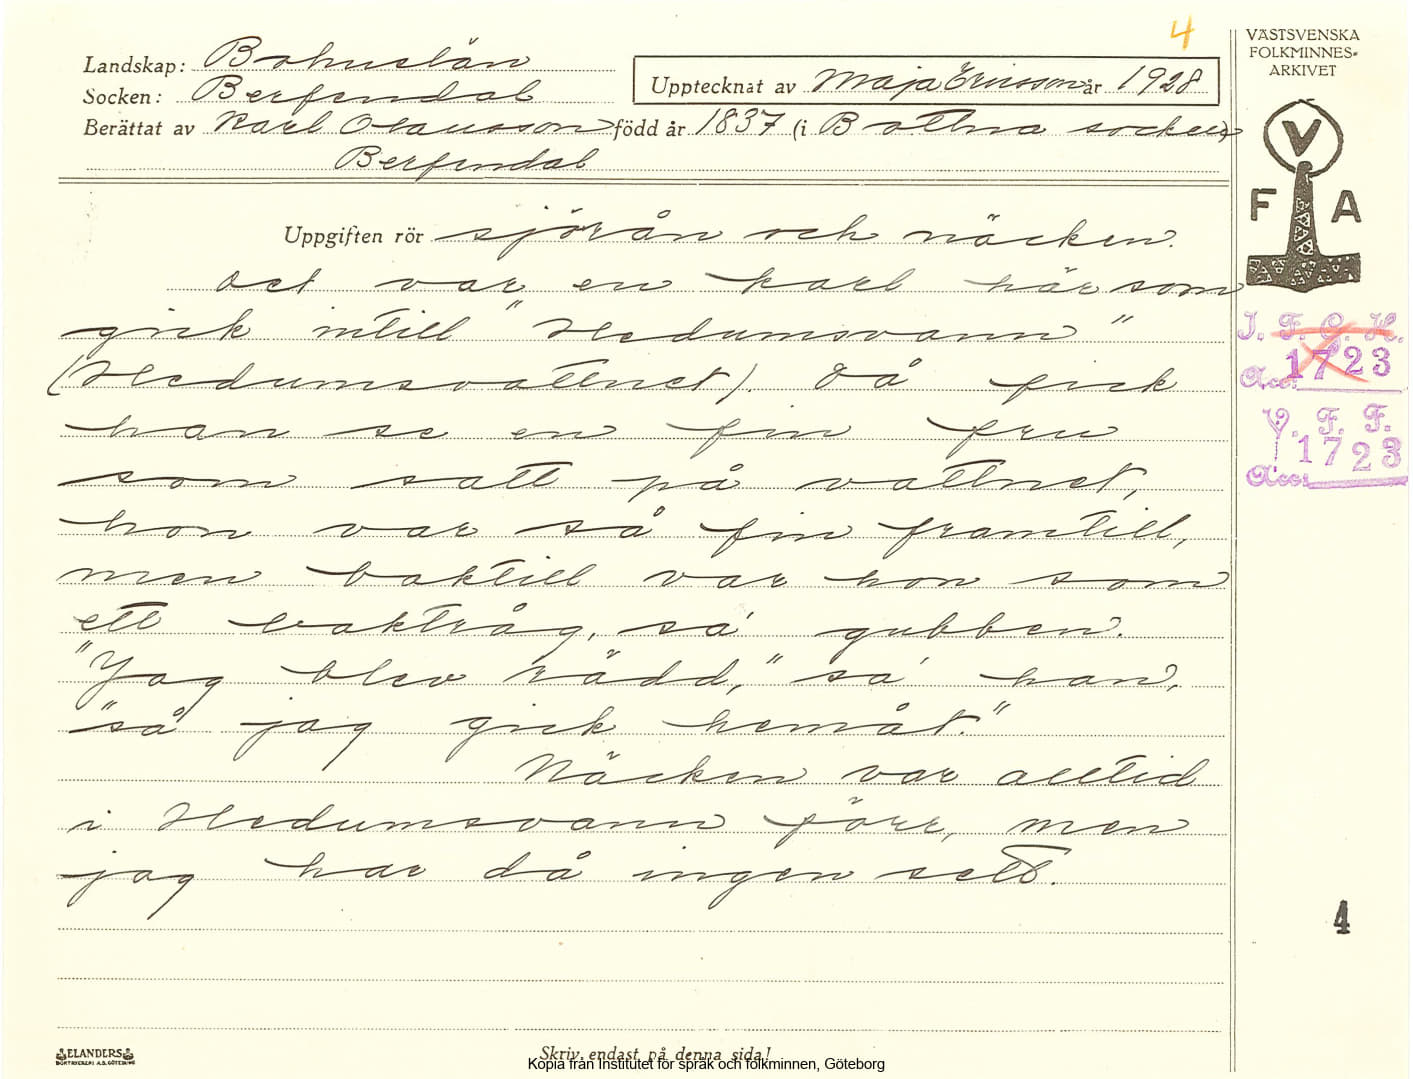 4
Landskap: Bohuslän
Socken: Berfendal
Upptecknat av Maja Ericsson år 1928
Berättat av Karl Olausson född år 1837 (i Bottna socken)
Berfendal
VÄSTSVENSKA
FOLKMINNES-
ARKIVET
V
F A
Uppgiften rör sjörån och näcken.
Det var en karl här som
gick intill "Hedumsvann"
(Hedumsvattnet). Då fick
han se en fin fru
som satt på vattnet,
hon var så fin framtill,
men baktill var hon som
ett baktråg, sa' gubben.
"Jag blev rädd," sa' han,
"så jag gick hemåt."
Näcken var alltid
i Hedumsvann förr, men
jag har då ingen sett.
I. F. G. H.
Acc. 1723
V. F. F.
Acc. 1723
4
ELANDERS
BOKTRYCKERI A.B. GÖTEBORG
Skriv endast på denna sida!
Kopia från Institutet för språk och folkminnen, Göteborg